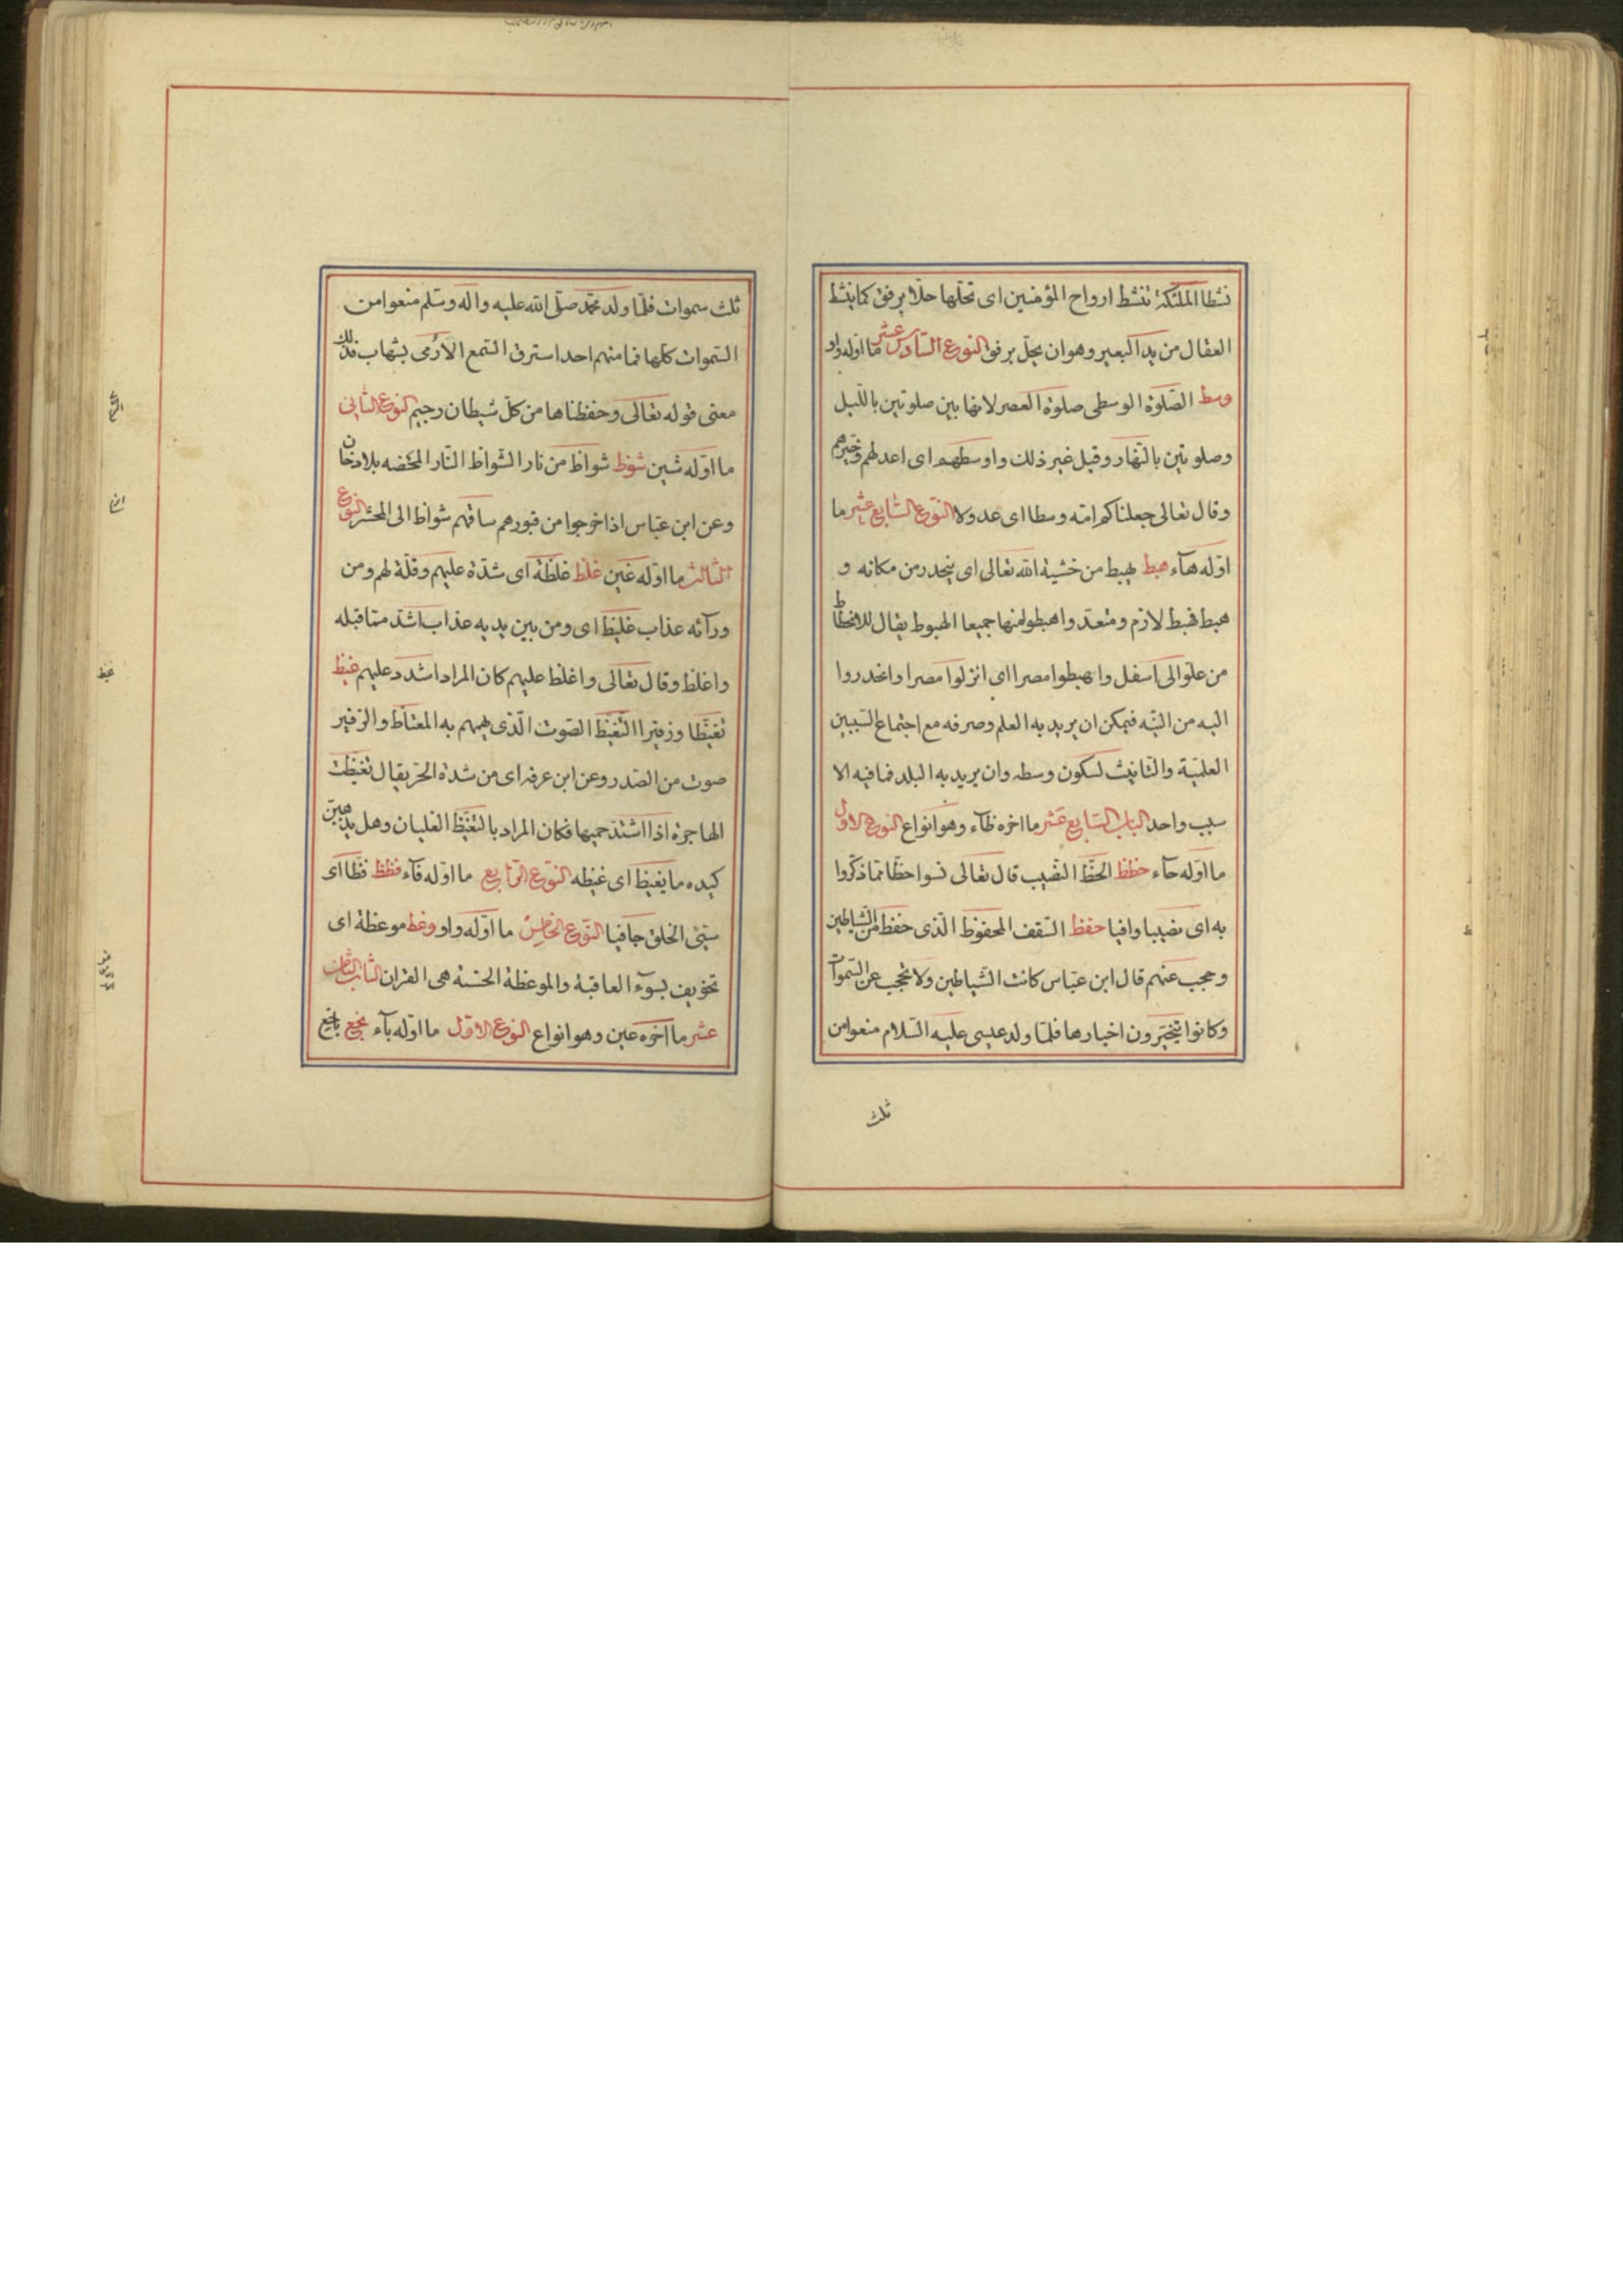 نشطا الملئكة تنشط ارواح المؤمنين اى تحلّها حلّا برفق كما ينشط
العقال من يد البعير وهو ان يحلّ برفق النوع السّادس عشر ما اوّله واو
وسط الصّلوة الوسطى صلوة العصر لانها بين صلوتين بالّليل
وصلوتين بالنّهار وقيل غير ذلك واوسطهم اى اعدلهم وخيرهم
وقال تعالى جعلناكم امّة وسطا اى عدولا النّوع السّابع عشر ما
اوّله هآء هبط يهبط من خشية الله تعالى اى ينحدر من مكانه و
هبط فهبط لازم ومتعدّ واهبطوا منها جميعا الهبوط يقال للانحطاط
من علوّ الى اسفل واهبطوا مصرا اى انزلوا مصرا وانحدروا
اليه من التّيه فيمكن ان يريد به العلم وصرفه مع اجتماع السّببين
العلميّة والتّانيث لسكون وسطه وان يريد به البلد فما فيه الا
سبب واحد الباب السّابع عشر ما اخره ظآء وهو انواع النوع الاوّل
ما اوّله حآء حظظ الحظّ النّصيب قال تعالى نسوا حظّا ممّا ذكّروا
به اى نصيبا وافيا حفظ السّقف المحفوظ الّذى حفظ من الشّياطين
وحجب عنهم قال ابن عبّاس كانت الشّياطين ولا تحجب عن السّموات
وكانوا يتخبّرون اخبارها فلمّا ولد عيسى عليه السّلام منعوا من
ثلث
ثلث سموات فلمّا ولد محمّد صلّى الله عليه واله وسلّم منعوا من
السّموات كلّها فما منهم احد استرق السّمع الّا رُمى بشهاب فذلك
معنى قوله تعالى وحفظناها من كلّ شيطان رجيم النوع الثّانى
ما اوّله شين شوظ شواظ من نار الشّواظ النّار المحضه بلا دخان
وعن ابن عبّاس اذا خرجوا من قبورهم ساقهم شواظ الى المحشر النّوع
الثالث ما اوّله غين غلظ غلظة اى شدّة عليهم وقلّة لهم ومن
ورآئه عذاب غليظ اى ومن بين يديه عذاب اشدّ ممّا قبله
واغلظ وقال تعالى واغلظ عليهم كان المراد اشدد عليهم غيظ
تغيّظا وزفيرا التّغيّظ الصّوت الّذى يهمهم به المغتاظ والزفير
صوت من الصّدر وعن ابن عرفه اى من شدّة الحرّ يقال تغيّظت
الهاجرة اذا اشتدّ حميها فكان المراد بالتغيّظ الغليان وهل يذهبنّ
كيده ما يغيظ اى غيظه النّوع الرّابع ما اوّله فآء فظظ فظّا اى
سيّئ الخلق جافيا النّوع الخامس ما اوّله واو وعظ موعظة اى
تخويف بسوء العاقبة والموعظة الحسنة هى القران الباب الثّامن
عشر ما اخره عين وهو انواع النوع الاوّل ما اوّله بآء بخع باخع